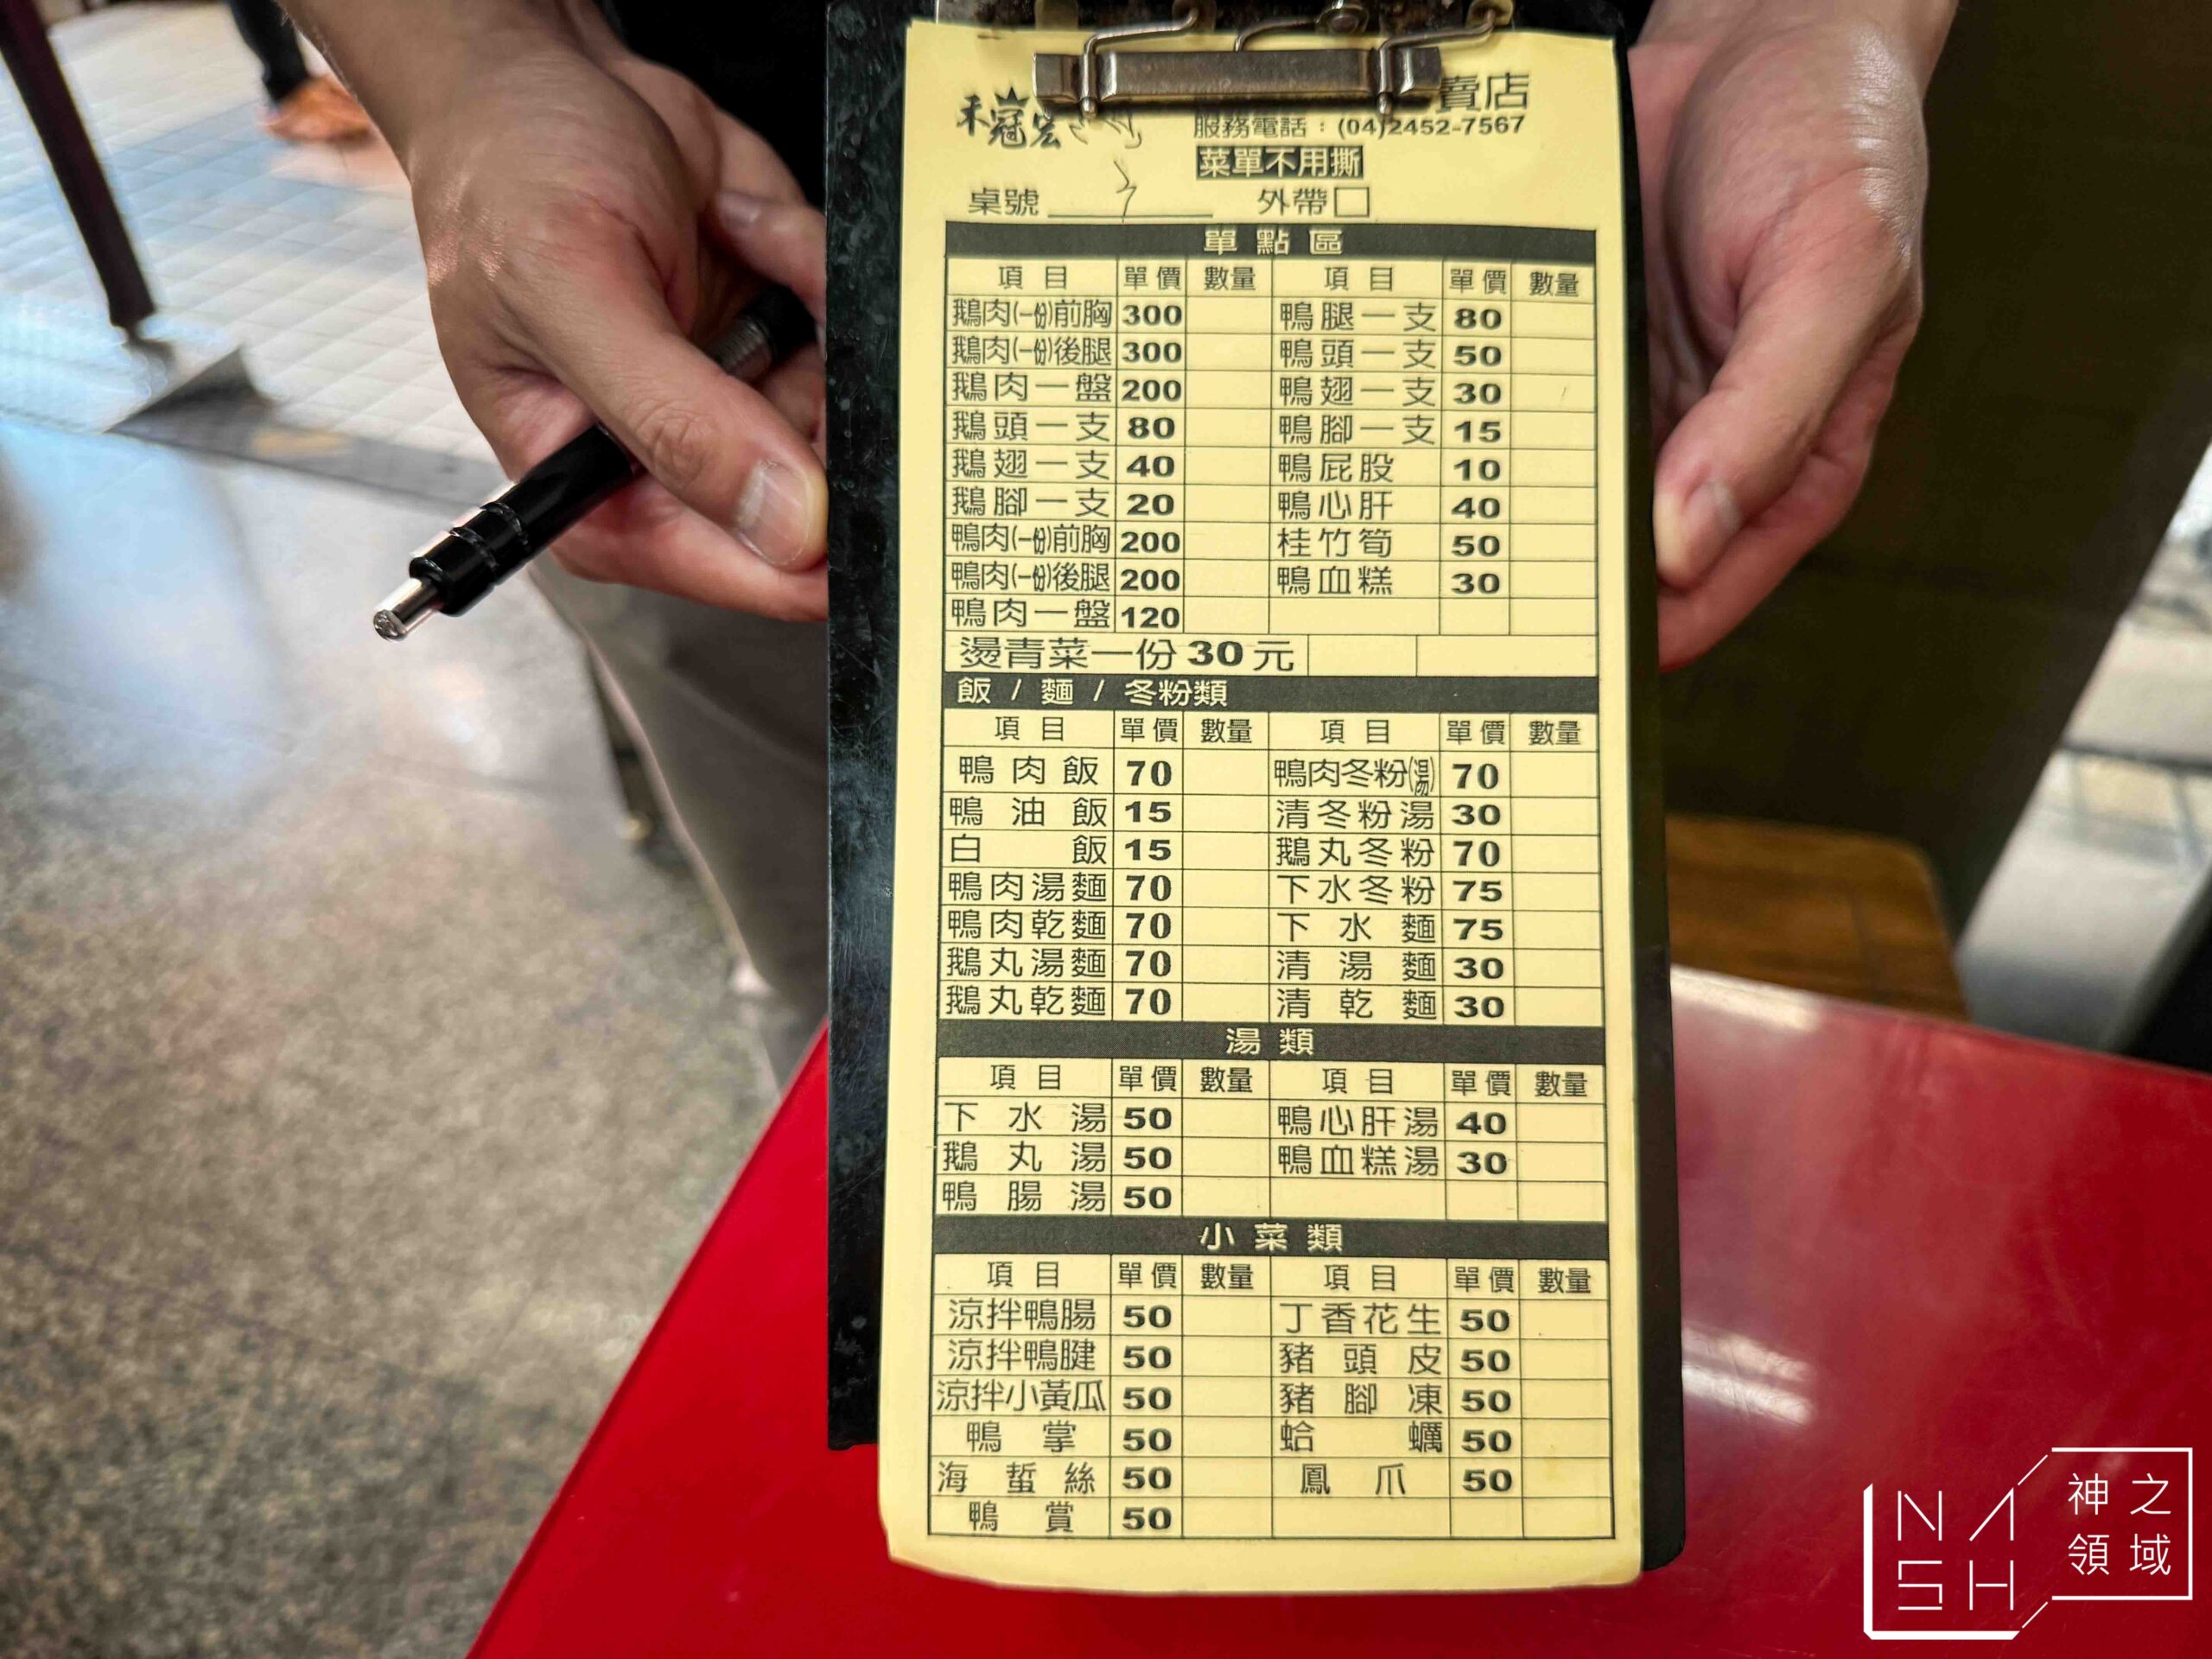 禾冠宏 賣店
服務電話：(04)2452-7567
菜單不用撕
桌號 外帶□
單點區
項目 單價 數量 項目 單價 數量
鵝肉(一份)前胸 300 鴨腿一支 80
鵝肉(一份)後腿 300 鴨頭一支 50
鵝肉一盤 200 鴨翅一支 30
鵝頭一支 80 鴨腳一支 15
鵝翅一支 40 鴨屁股 10
鵝腳一支 20 鴨心肝 40
鴨肉(一份)前胸 200 桂竹筍 50
鴨肉(一份)後腿 200 鴨血糕 30
鴨肉一盤 120
燙青菜一份30元
飯 / 麵 / 冬粉類
項目 單價 數量 項目 單價 數量
鴨肉飯 70 鴨肉冬粉(湯) 70
鴨油飯 15 清冬粉湯 30
白飯 15 鵝丸冬粉 70
鴨肉湯麵 70 下水冬粉 75
鴨肉乾麵 70 下水麵 75
鵝丸湯麵 70 清湯麵 30
鵝丸乾麵 70 清乾麵 30
湯類
項目 單價 數量 項目 單價 數量
下水湯 50 鴨心肝湯 40
鵝丸湯 50 鴨血糕湯 30
鴨腸湯 50
小菜類
項目 單價 數量 項目 單價 數量
涼拌鴨腸 50 丁香花生 50
涼拌鴨腱 50 豬頭皮 50
涼拌小黃瓜 50 豬腳凍 50
鴨掌 50 蛤蠣 50
海蜇絲 50 鳳爪 50
鴨賞 50
NASH 神之領域